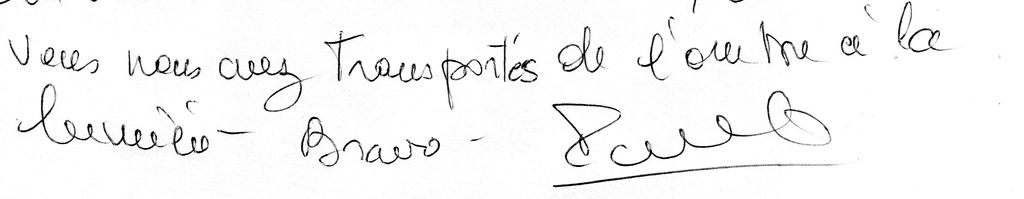 Vous nous avez transportés de l'ombre à la
lumière - Bravo -